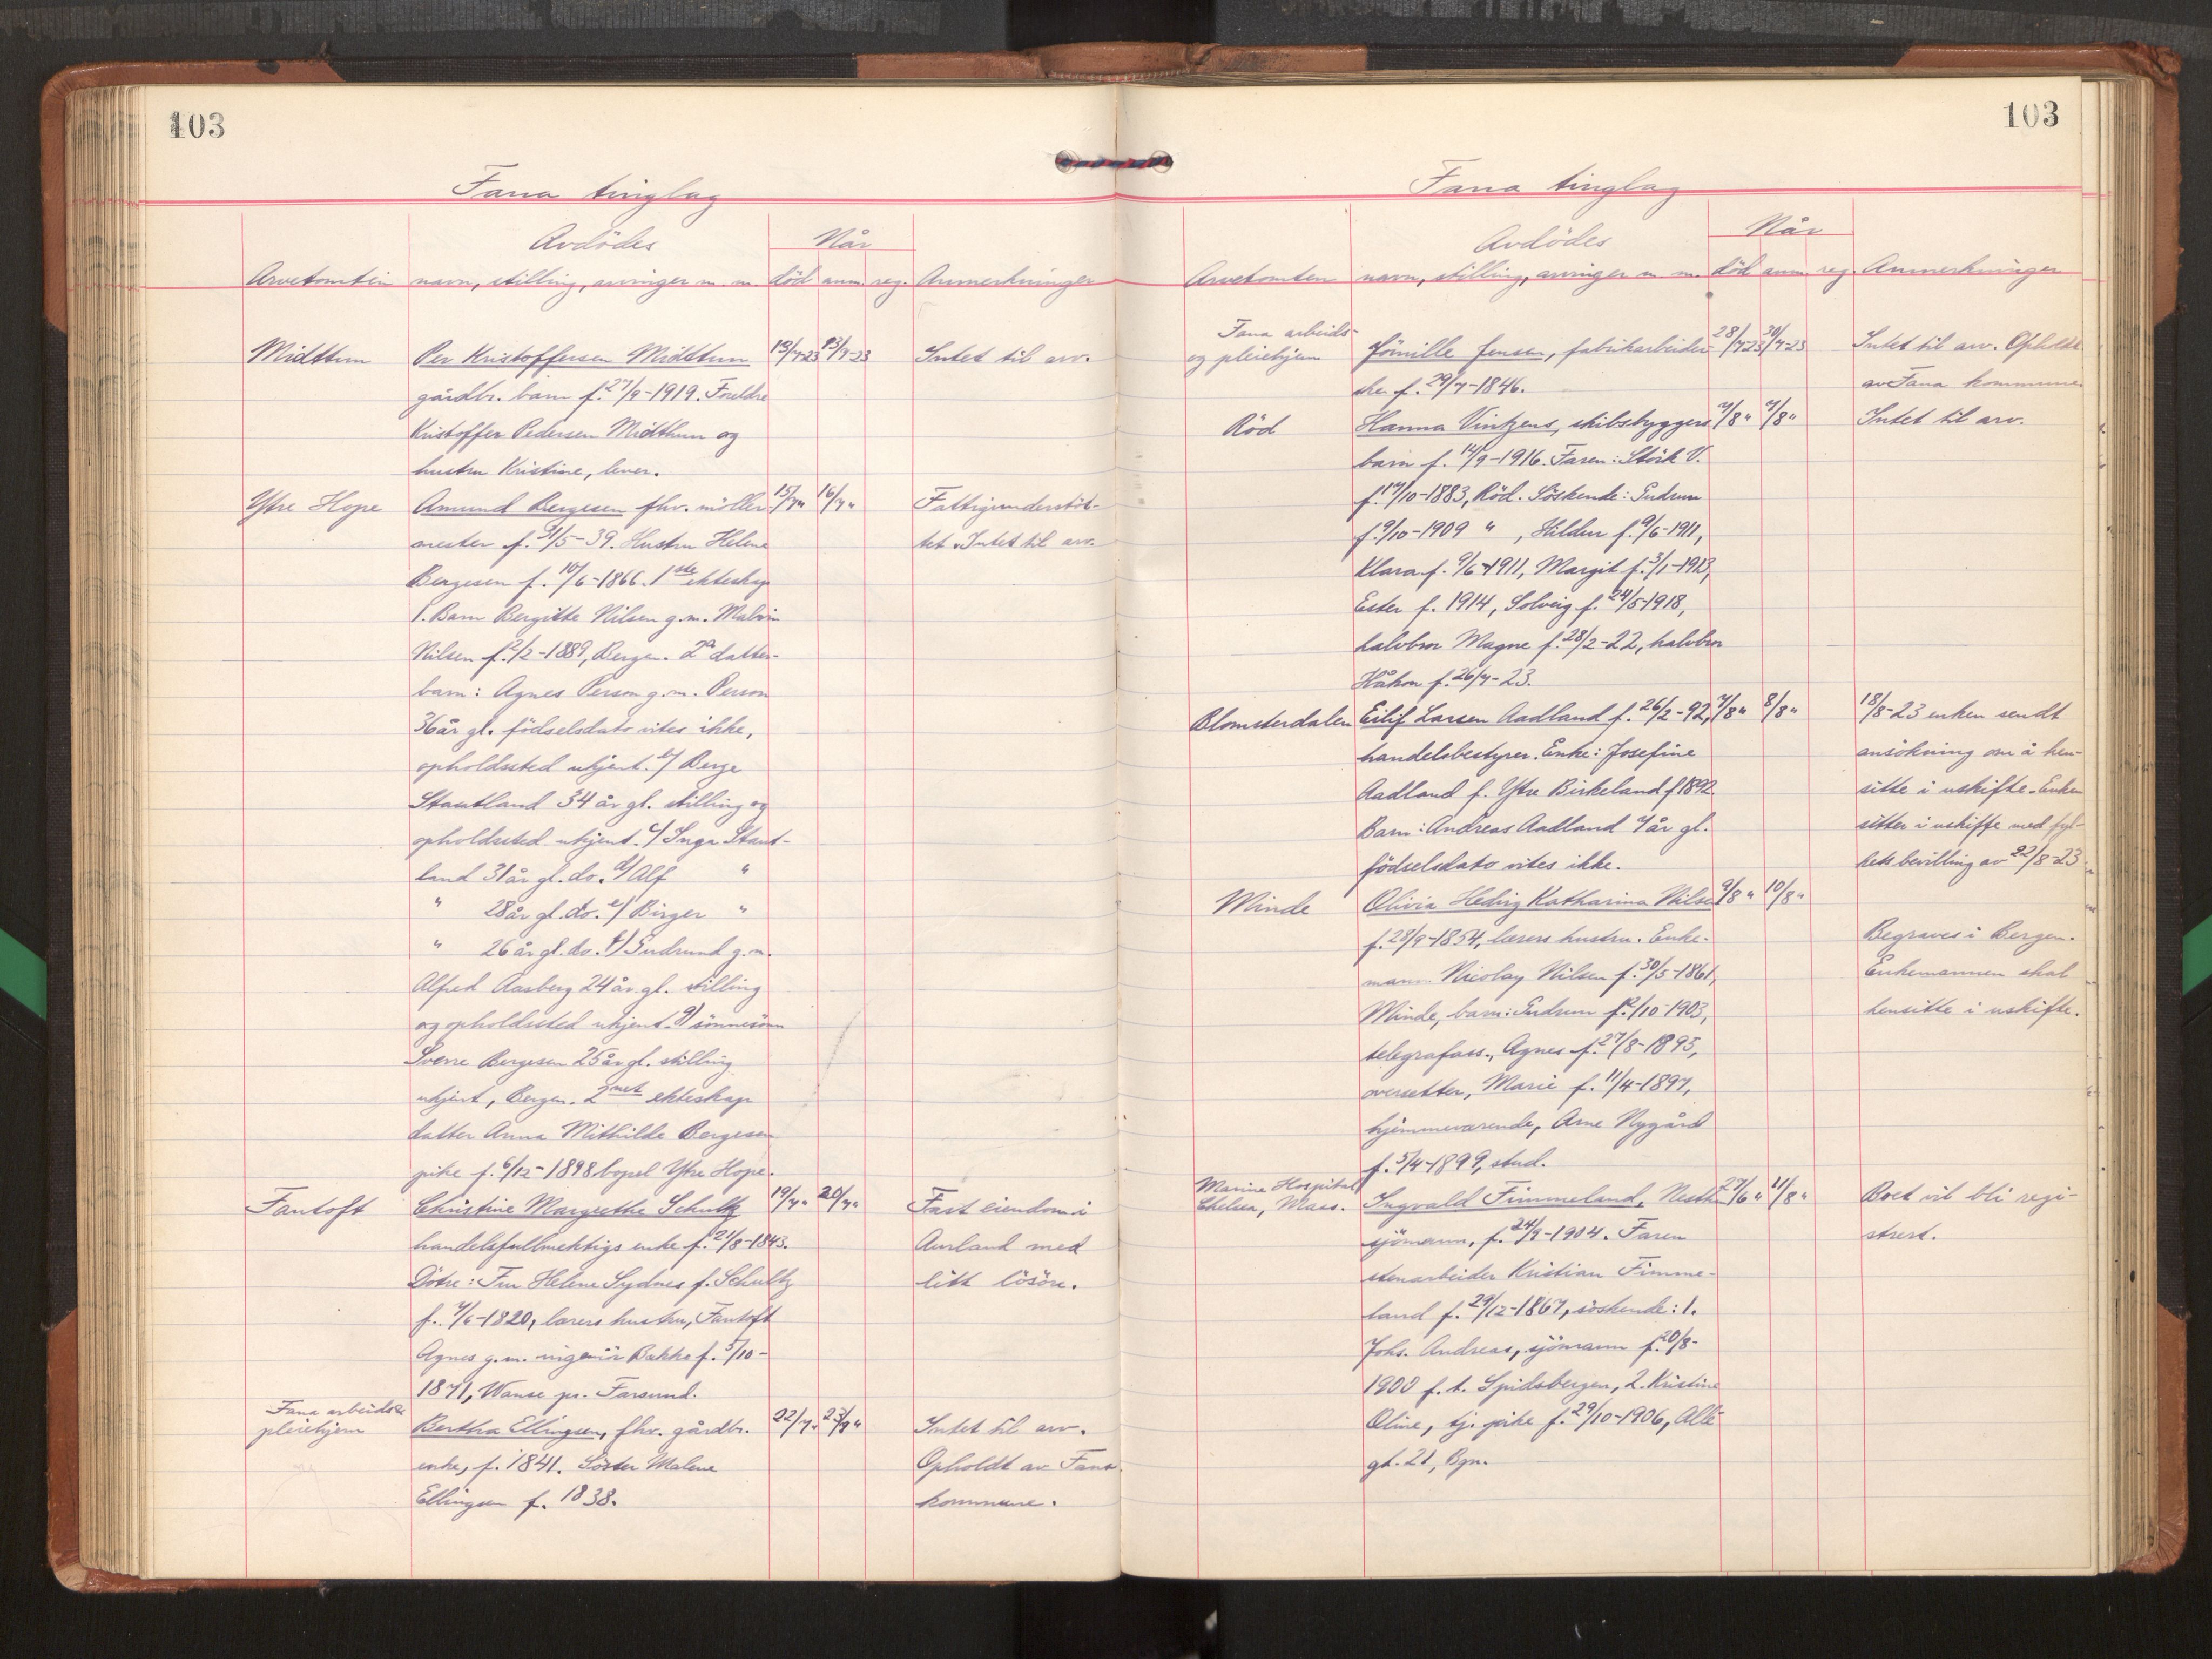 103
Fana tinglag
Avdödes
Når
Arvetomten navn, stilling, arvinger m. m. död anm. reg. Anmerkninger
Midttun Per Kristoffersen Midttun 13/7-23 13/7-23 Intet til arv.
gårdbr. barn f. 27/9-1919. Foreldre
Kristoffer Pedersen Midttun og
hustru Kristine, lever.
Ytre Hope Amund Bergesen fhv. möller- 15/7 " 16/7 " Fattigunderstöt-
mester f. 31/5-39. Hustru Helene tet. Intet til arv.
Bergesen f. 10/6-1866. 1ste ekteskap
1. Barn Bergitte Nilsen g.m. Malvin
Nilsen f. 2/2-1889, Bergen. 2 a datter-
barn: Agnes Person g.m. Person
36 år gl. födselsdato vites ikke,
opholdssted ukjent. b/ Berge
Stautland 34 år gl. stilling og
opholdssted ukjent. c/ Inga Staut-
land 31 år gl. do. d/ Alf "
" 28 år gl. do. e/ Birger "
" 26 år gl. do. f/ Gudrund g.m.
Alfred Aasberg 24 år gl. stilling
og opholdssted ukjent. g/ sönnesönn
Sverre Bergesen 25 år gl. stilling
ukjent, Bergen. 2net ekteskap
datter Anna Mithilde Bergesen
pike f. 6/12-1898 bopel Ytre Hope.
Fantoft Christine Margrethe Schultz 19/7 " 20/7 " Fast eiendom i
handelsfullmektigs enke f. 21/8-1843. Aurland med
Dötre: Fru Helene Sydnes f. Schultz litt lösöre.
f. 7/6-1820, lærers hustru, Fantoft
Agnes g.m. ingeniör Bakke f. 5/10-
1871, Wanse pr. Farsund.
Fana arbeids &
pleiehjem Bertha Ellingsen, fhv. gårdbr. 22/7 " 23/7 " Intet til arv.
enke, f. 1841. Söster Malene Opholdt av Fana
Ellingsen f. 1838. kommune.
103
Fana tinglag
Avdödes
Når
Arvetomten navn, stilling, arvinger m m. död anm reg. Anmerkninger
Fana arbeids-
og pleiehjem Jensen, fabrikarbeider- 28/7-23 30/7-23 Intet til arv. Opholdt
ske f. 29/7-1846. av Fana kommune.
Röd Hanna Vintzens, skibsbyggers 7/8 " 7/8 " Intet til arv.
barn f. 14/9-1916. Faren: Störk V.
f. 17/10-1883, Röd. Söskende: Gudrun
f. 9/10-1909 ", Hildur f. 9/6-1911,
Klara f. 9/6-1911, Margit f. 3/1-1913,
Ester f. 1914, Solveig f. 24/5-1918,
halvbror Magne f. 28/2-22, halvbror
Håkon f. 26/7-23.
Blomsterdalen Eilif Larsen Aadland f. 26/2-92, 7/8 " 8/8 " 18/8-23 enken sendt
handelsbestyrer. Enke: Josefine ansökning om å hen-
Aadland f. Ytre Birkeland f 1892 sitte i uskifte. Enken
Barn: Andreas Aadland 7 år gl. sitter i uskifte med fyl-
födselsdato vites ikke. kets bevilling av 22/8-23
Minde Olivia Hedvig Katharina Nilsen 9/8 " 10/8 "
f. 28/9-1854, lærers hustru. Enke- Begraves i Bergen.
mann Nicolay Nilsen f. 30/5-1861, Enkemannen skal
Minde, barn: Gudrun f. 12/10-1903, hensitte i uskifte.
telegrafass., Agnes f. 27/8-1895,
oversetter, Marie f. 11/4-1897,
hjemmeværende, Arne Nygård
f. 5/4-1899, stud.
Marine Hospital
Chelsea, Mass. Ingvald Fimmeland, Nesttun 27/6 " 11/8 " Boet vil bli regi-
sjömann, f. 24/9-1904. Faren strert.
stenarbeider Kristian Fimme-
land f. 29/12-1867, söskende: 1.
Johs. Andreas, sjömann f. 20/8-
1900 f. t. Spidsbergen, 2. Kristine
Oline, tj. pike f. 29/10-1906, Allé
gt. 21, Bgn.